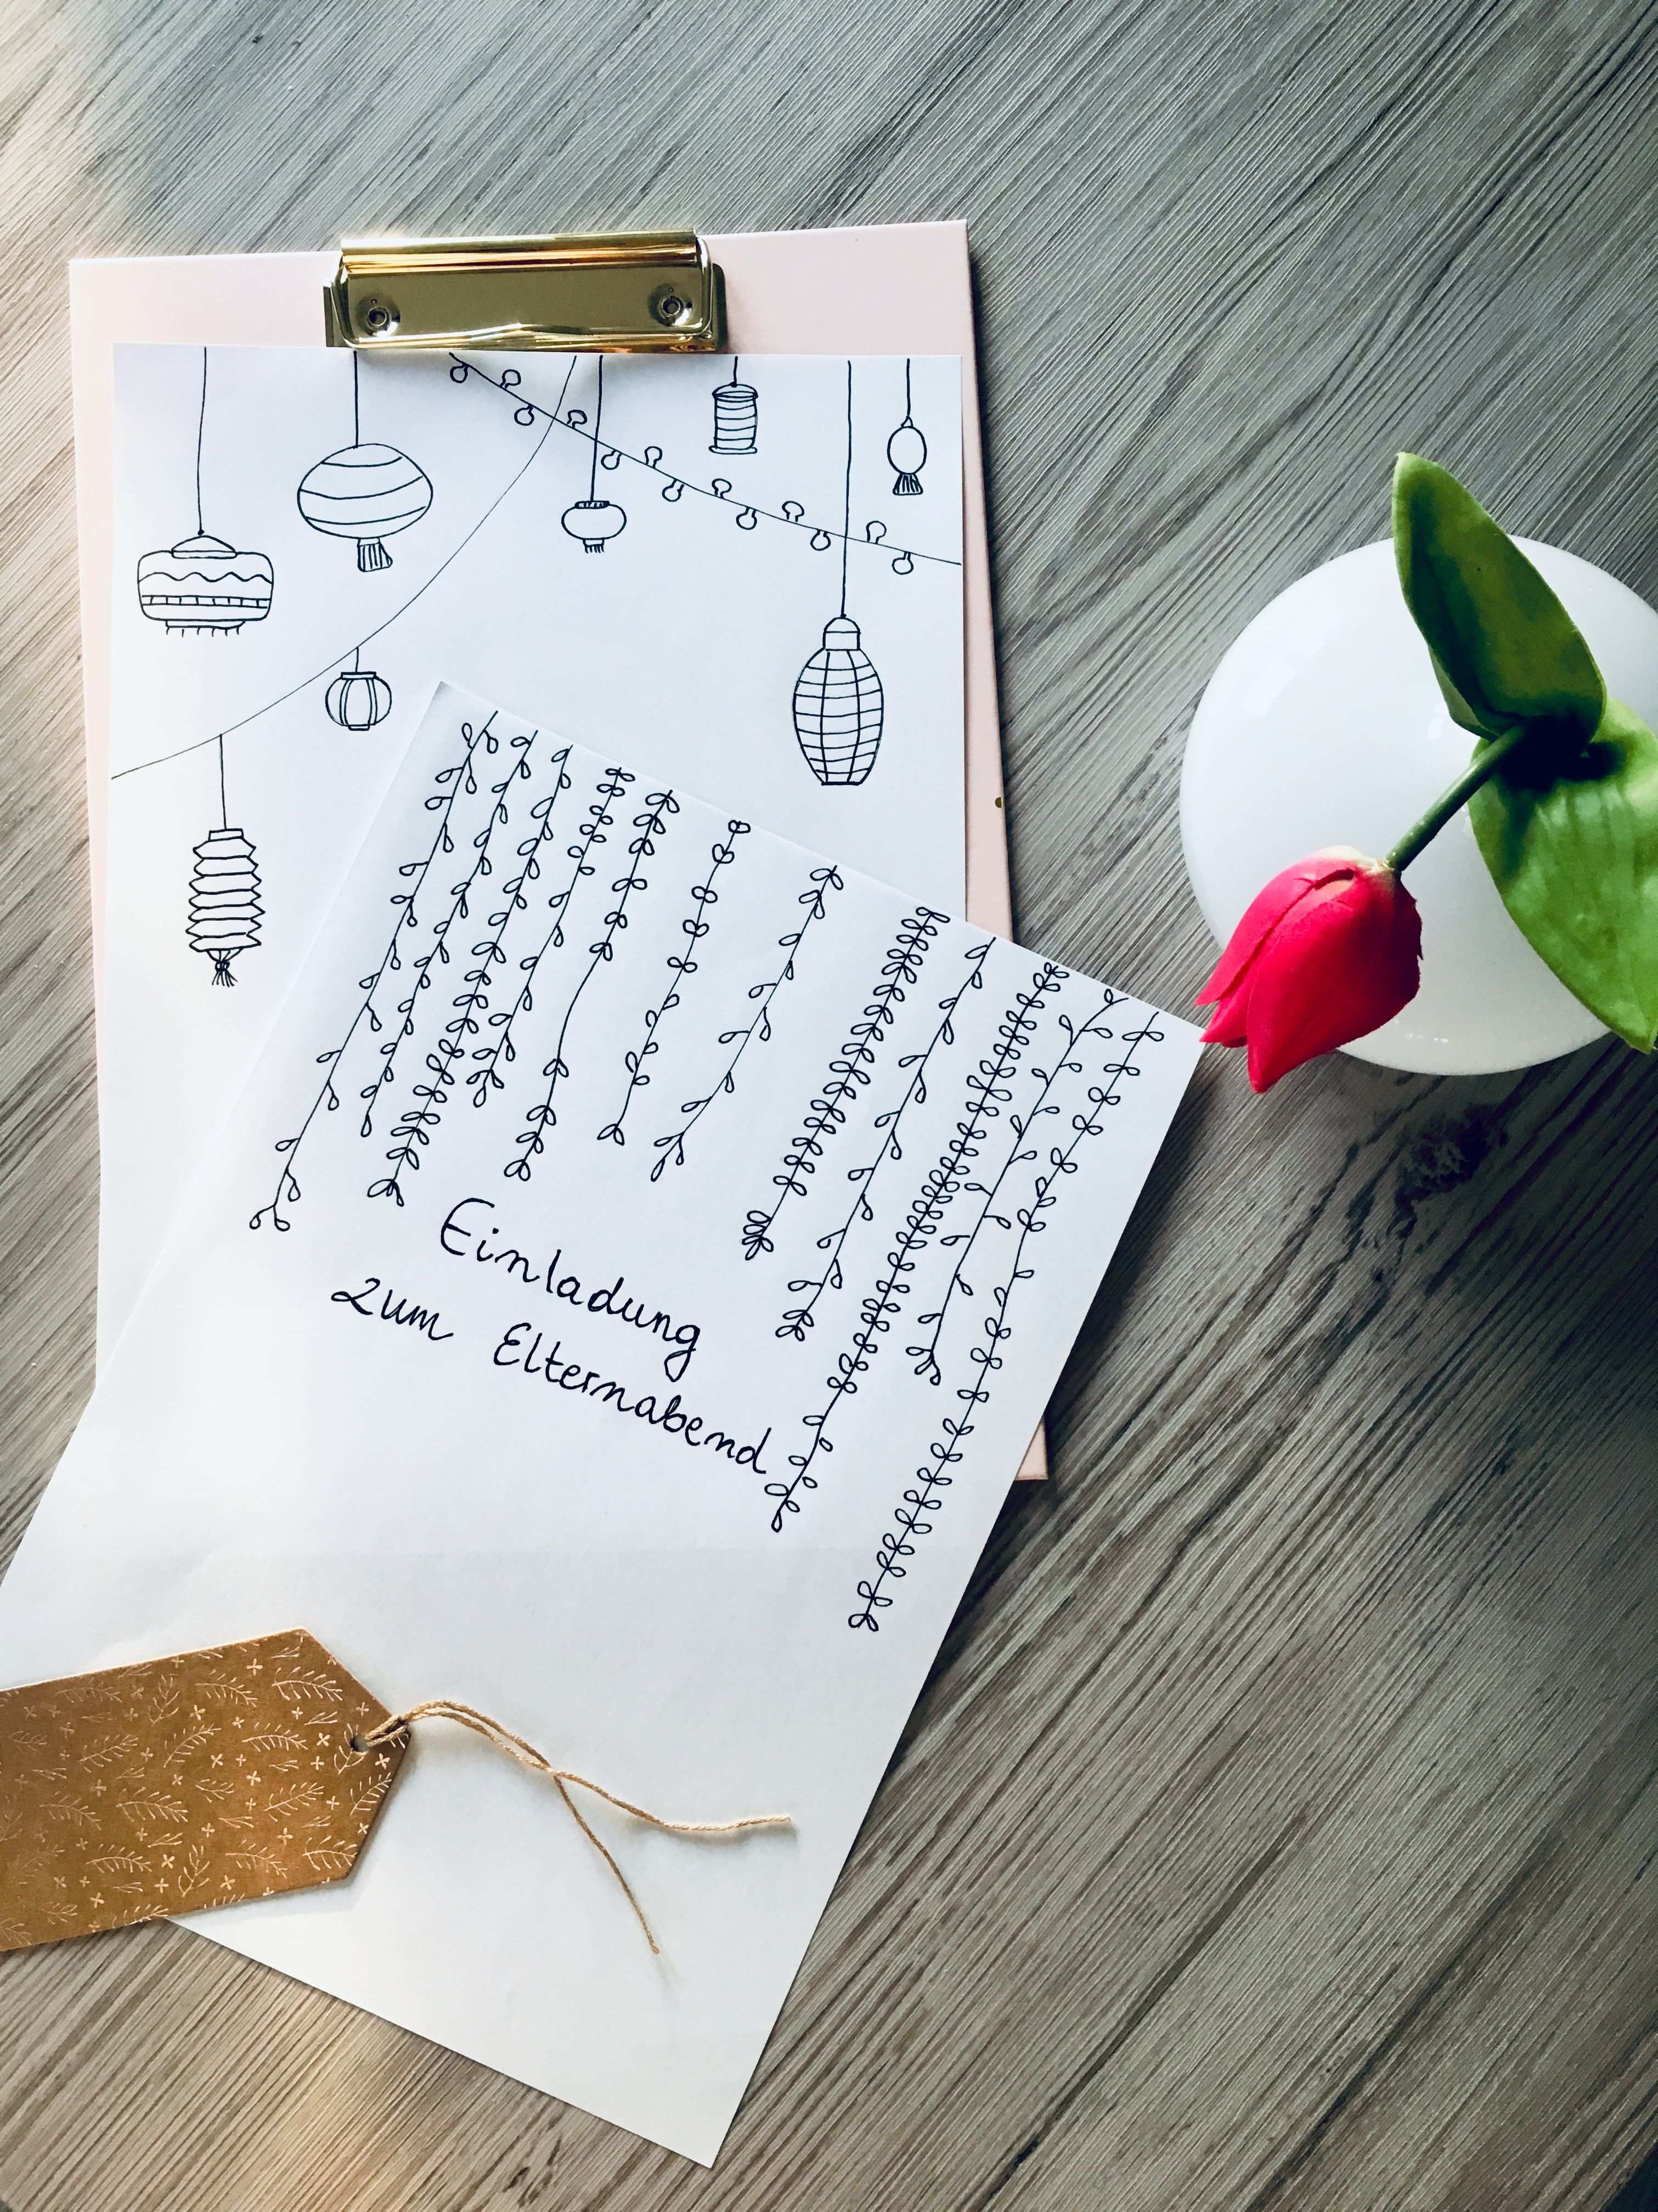 Einladung
zum Elternabend